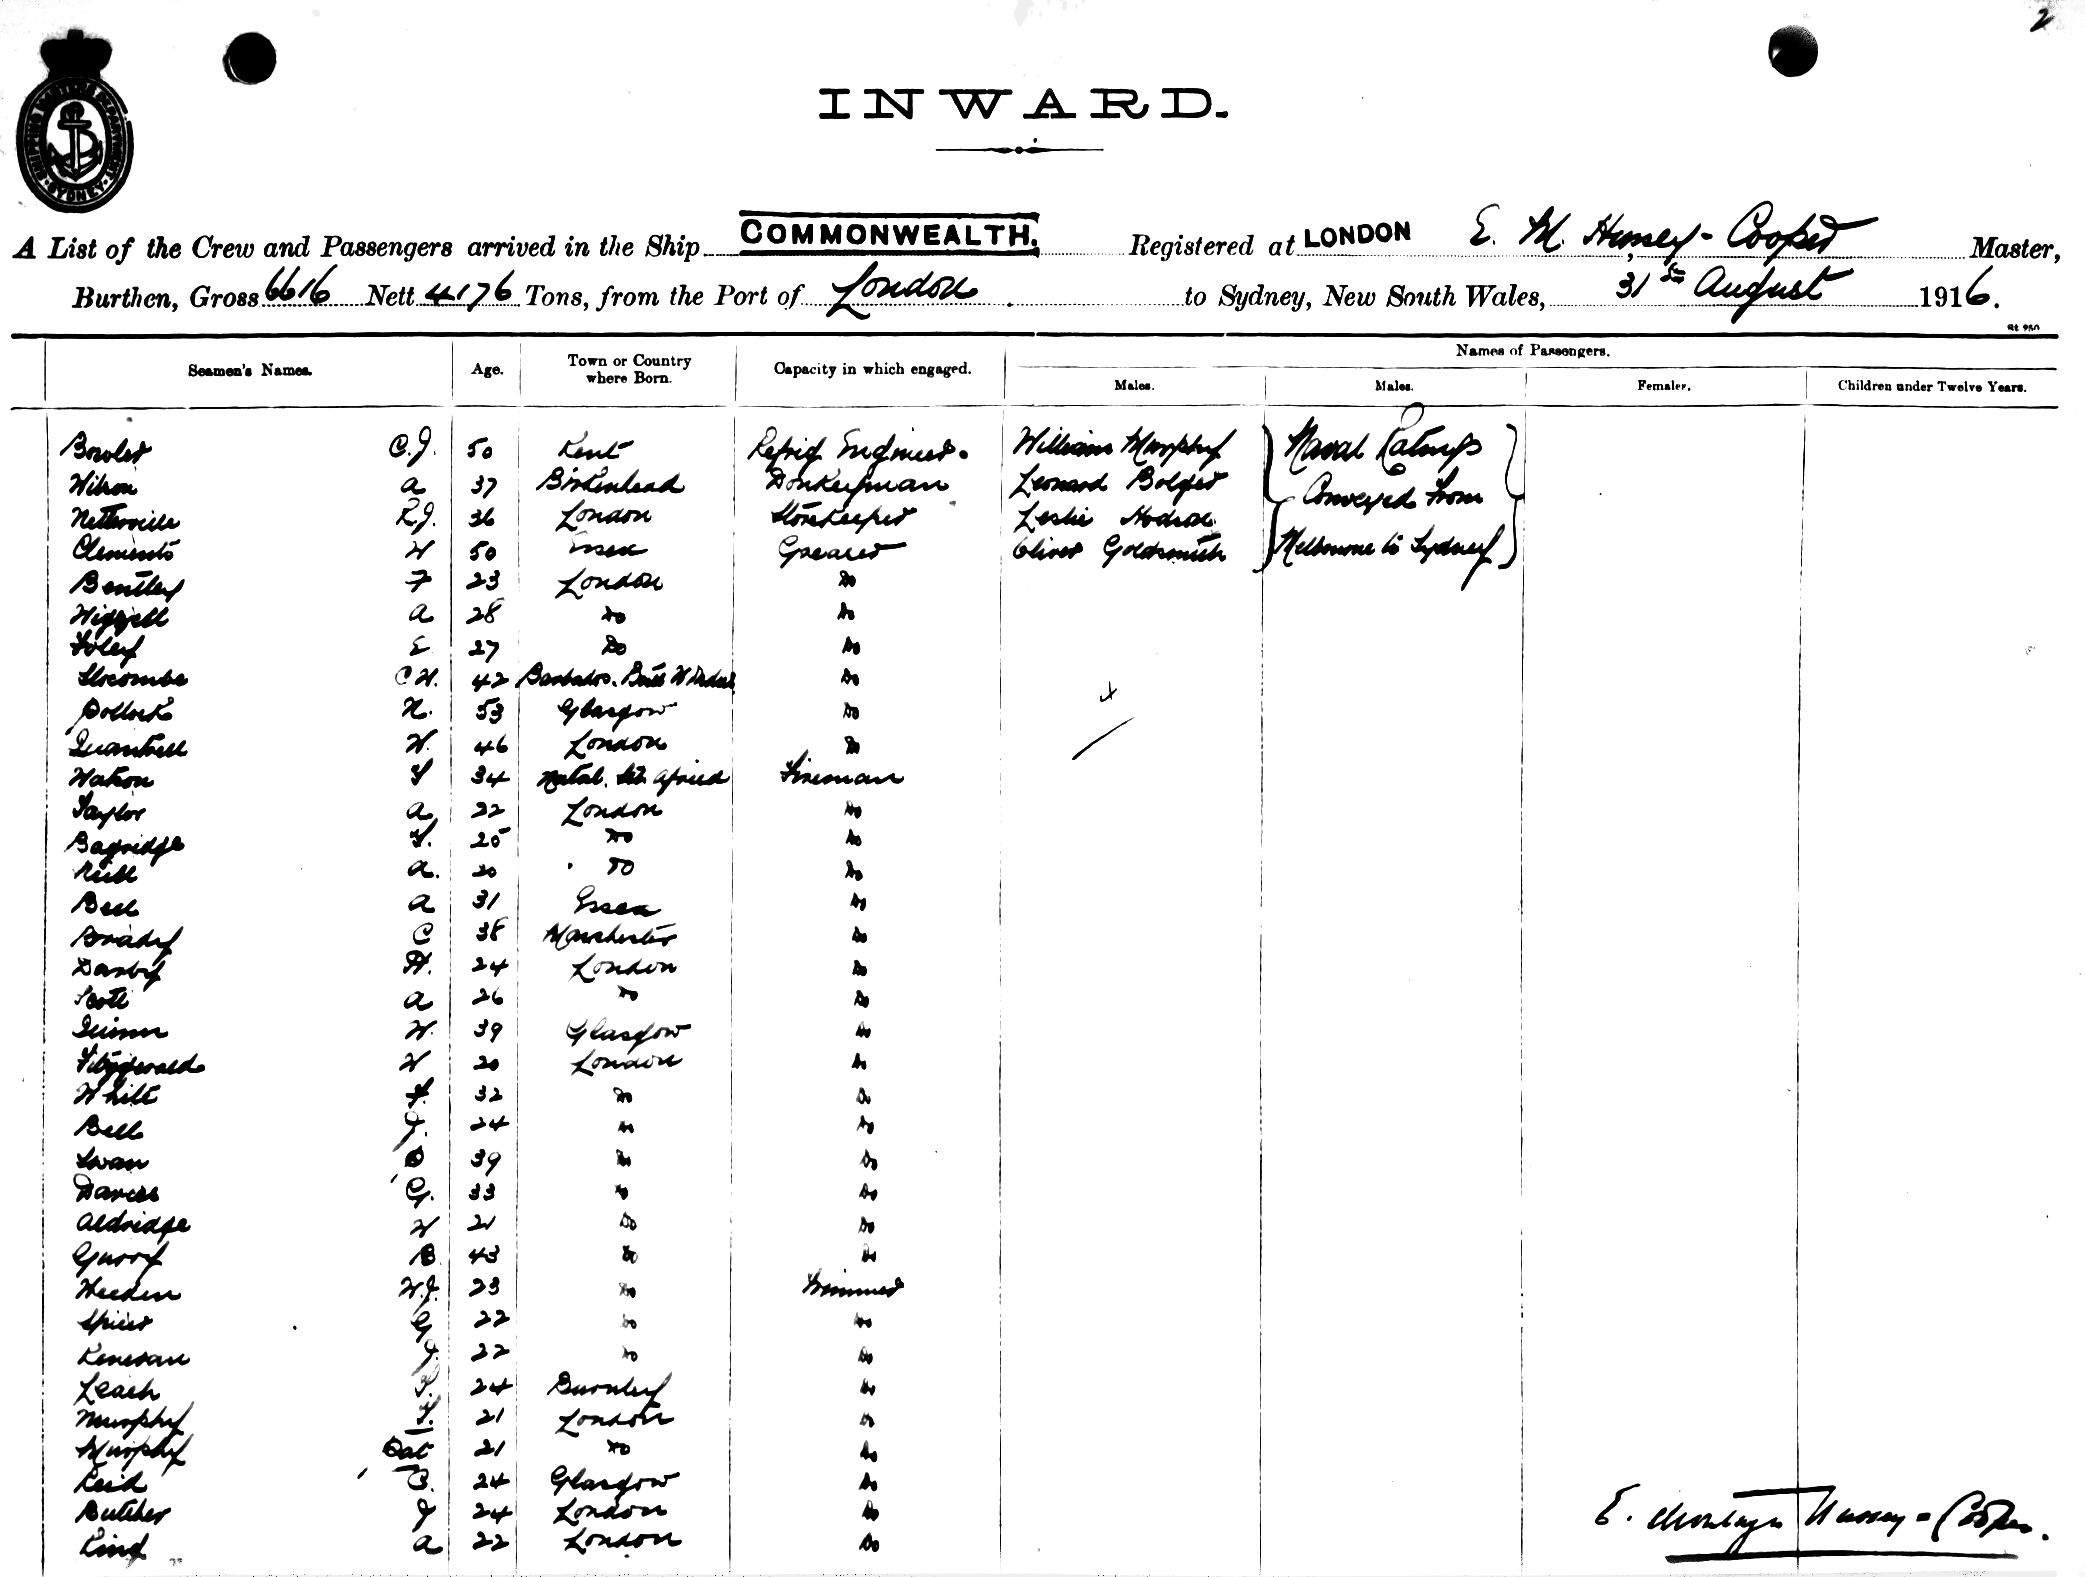 2
SHIPPING MASTERS DEPARTMENT SYDNEY
INWARD.
A List of the Crew and Passengers arrived in the Ship COMMONWEALTH. Registered at LONDON E. M. Hussey-Cooper Master,
Burthen, Gross 6616 Nett 4176 Tons, from the Port of London to Sydney, New South Wales, 31st August 1916.
Seamen's Names. Age. Town or Country where Born. Capacity in which engaged. Names of Passengers.
Males. Males. Females. Children under Twelve Years.
Bowler C.J. 50 Kent Refrig Engineer. William Murphy Naval Ratings
Wilson A 37 Birkenhead Donkeyman Leonard Bolger Conveyed from
Netterville R.J. 36 London Storekeeper Leslie Hodson
Clements W 50 Essex Greaser Oliver Goldsmith Melbourne to Sydney
Bentley F 23 London Do
Wigzell A 28 Do Do
Foley E 27 Do Do
Slocombe C W. 42 Barbados. Brit W Indies Do
Pollock N. 53 Glasgow Do
Quantrell W. 46 London Do
Watson T 34 Natal. Sth Africa Fireman
Taylor A 22 London Do
Bagridge T. 25 Do Do
A. 20 Do Do
Bell A 31 Essex Do
Brady C 38 Manchester Do
Darby H. 24 London Do
Scott A 26 Do Do
Quinn W. 39 Glasgow Do
Fitzgerald W 20 London Do
White F. 32 Do Do
Bell J. 24 Do Do
Swan 39 Do Do
Davies G. 33 Do Do
Aldridge W 21 Do Do
B 43 Do Do
Weeden W.J. 23 Do Trimmer
Spicer G 22 Do Do
Kenevan J. 22 Do Do
Leach 24 Burnley Do
Murphy T. 21 London Do
Murphy Pat 21 Do Do
Reid 24 Glasgow Do
Butcher J 24 London Do
King A 22 London Do
E. Montagu Hussey-Cooper.